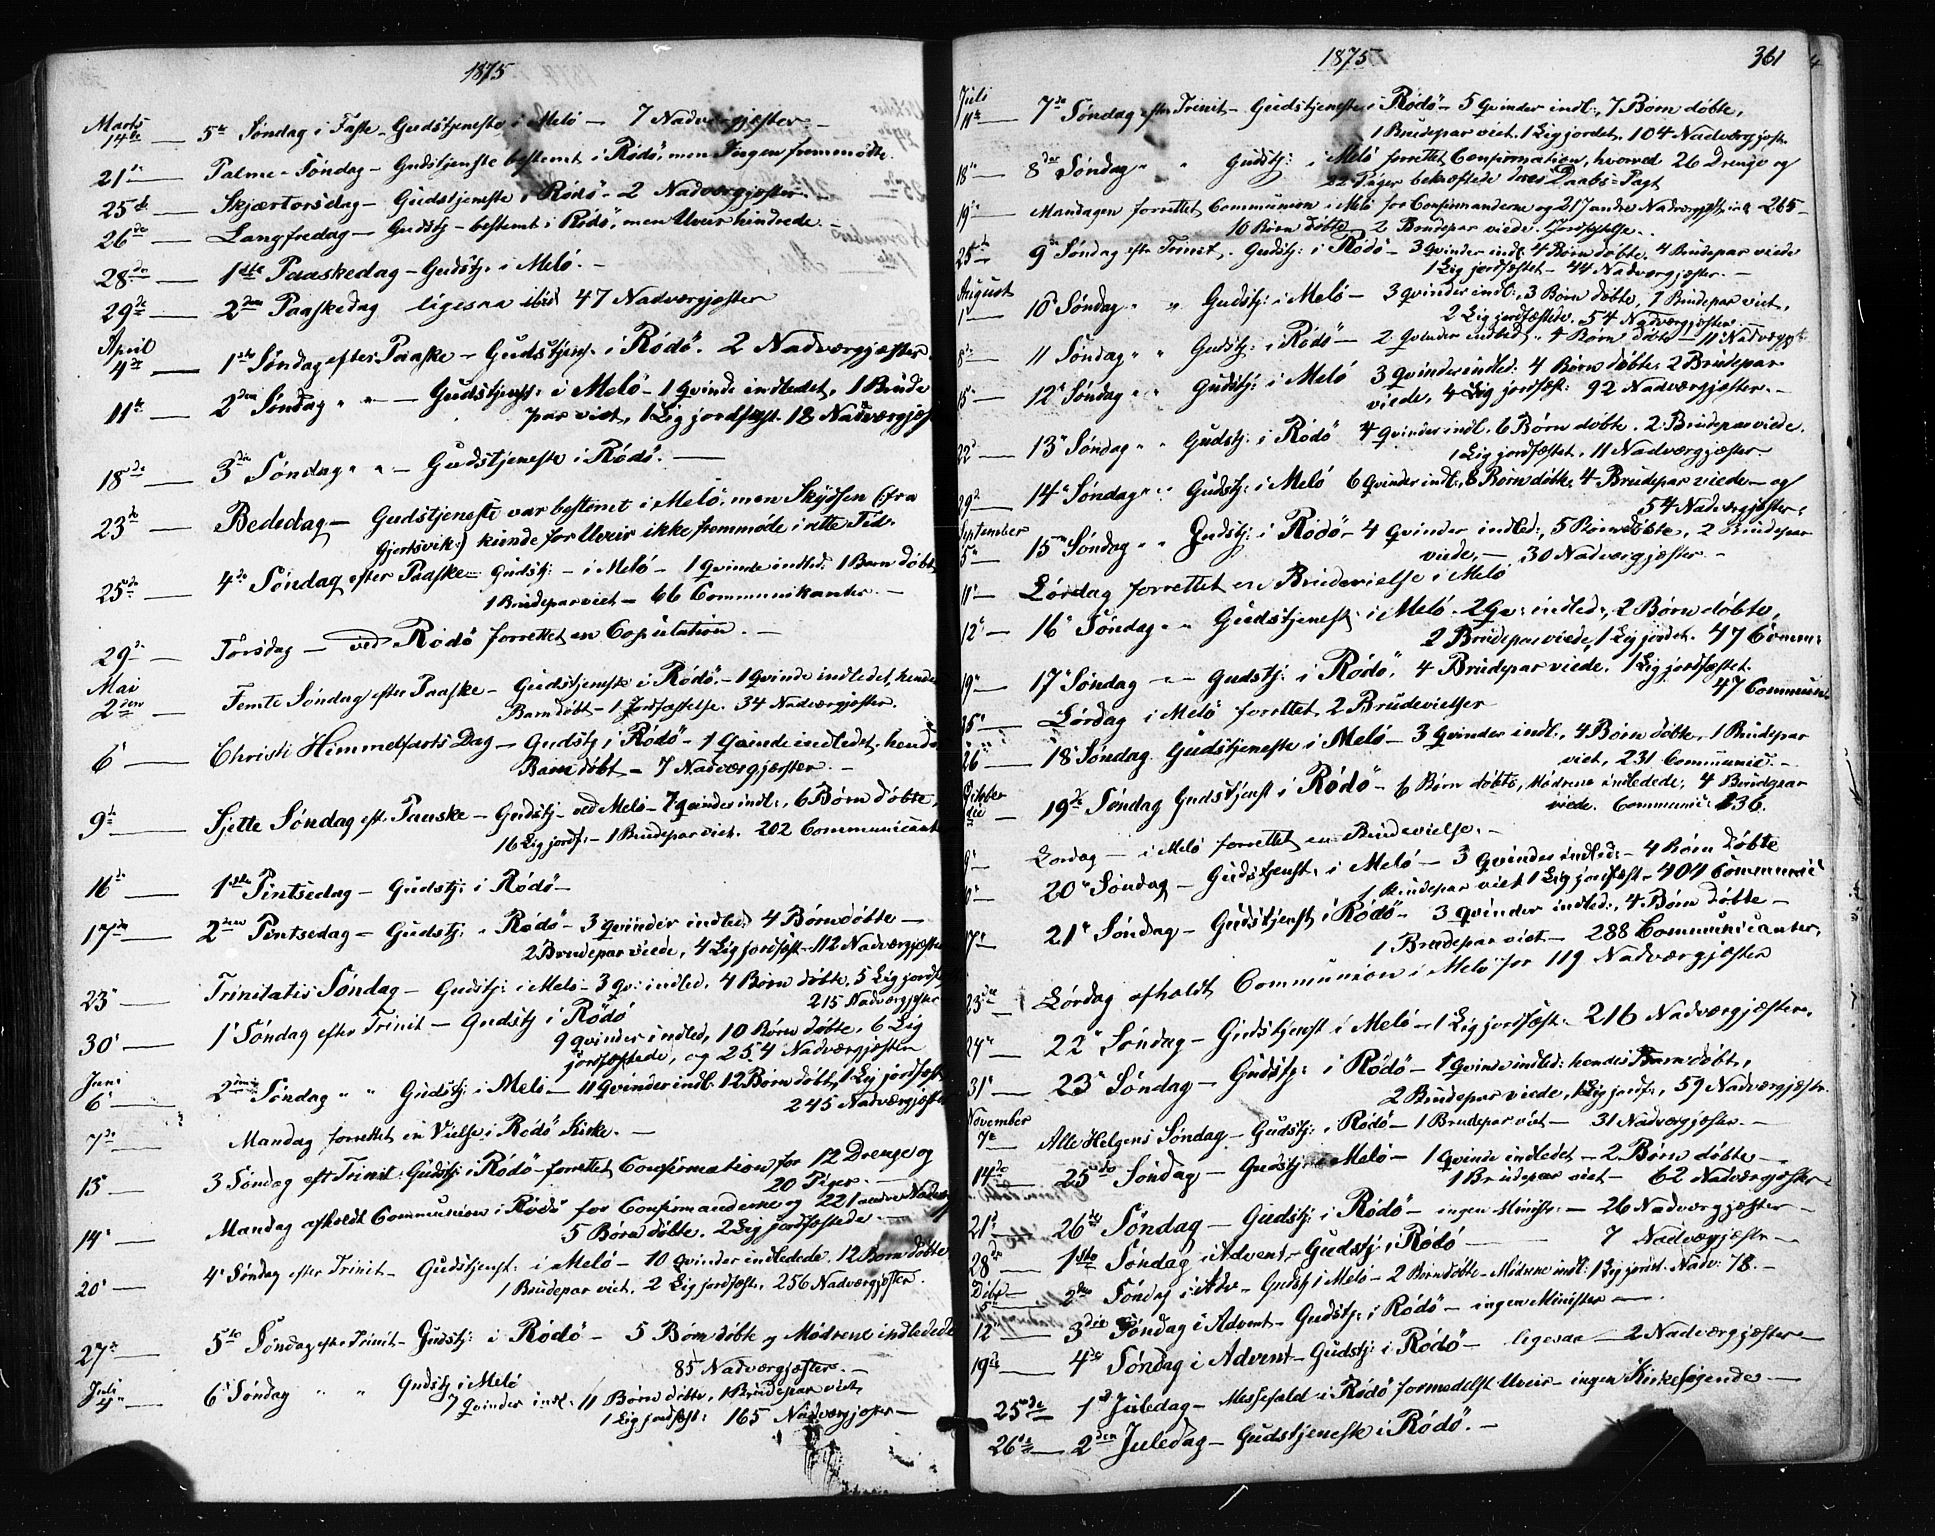 1875
Marts
14de — 5te Søndag i Faste – Gudstjeneste i Melö – 7 Nadvergjæster –
21de — Palme-Søndag – Gudstjeneste bestemt i Rödö, men Ingen fremmødte.
25de — Skjærtorsdag – Gudstjeneste i Rödö – 2 Nadvergjæster.
26de — Langfredag – Gudstj – bestemt i Rödö, men Uveir hindrede. –
28de — 1ste Paaskedag – Gudstj. i Melö. –
29de — 2den Paaskedag ligesaa ibid 47 Nadvergjæster
April
4de — 1ste Søndag efter Paaske – Gudstjenst. i Rödö. 2 Nadvergjæster.
11te — 2den Søndag " " – Gudstjenest: i Melö – 1 Qvinde indledet, 1 Brude
par viet, 1 Lig jordfæst. 18 Nadvergjæst
18de — 3die Søndag " " – Gudstjeneste i Rödö. –
23de — Bededag – Gudstjeneste var bestemt i Melö, men Skydsen (:fra
Gjersvik:) kunde for Uveir ikke fremmøde i rette Tid.
25de — 4de Søndag efter Paaske – Gudstj: – i Melö – 1 Qvinde indled: 1 Barn døbt
1 Brudepar viet – 66 Communikanter. –
29de — Torsdag – ved Rödö forrettet en Copulation. –
Mai
2den — Femte Søndag efter Paaske – Gudstjeneste i Rödö – 1 Qvinde indledet, hendes
Barn døbt – 1 Jordfæstelse. 34 Nadvergjæster.
6' — Christi Himmelfarts Dag – Gudstj i Rödö – 1 Qvinde indledet. hendes
Barn døbt – 7 Nadvergjæster. –
9de — Sjette Søndag eft. Paaske – Gudstj – ved Melö – 7 Qvinder indl:, 6 Børn døbte,
16 Lig jordf: – 1 Brudepar viet. 202 Communicant
16de — 1ste Pintsedag – Gudstj: i Rödö –
17de — 2den Pintsedag – Gudstj: i Rödö – 3 Qvinder indled: 4 Børn døbte –
2 Brudepar viede, 4 Lig jordfæst – 112 Nadvergjæster
23' — Trinitatis Søndag – Gudstj: i Melö – 3 Qv: indled, 4 Børn døbte, 5 Lig jordf
215 Nadvergjæster
30' — 1' Søndag efter Trinit – Gudstj i Rödö
9 Qvinder indled, 10 Børn døbte, 6 Lig
jordfæstede, og 254 Nadvergjæster
Juni
6' — 2den Søndag " " Gudstj: i Melö – 11 Qvinder indl: 12 Børn døbt, 1 Lig jordfæst
245 Nadvergjæst
7de — Mandag forrettet en Vielse i Rödö Kirke. –
13 — 3 Søndag eft Trinit. Gudstj: i Rödö – forrettet Confirmation for 12 Drenge og
20 Piger. –
14' — Mandag afholdt Communion i Rödö for Confirmanderne og 221 andre Nadverg
5 Børn døbte. 2 Lig jordfæstede. –
20' — 4' Søndag efter Trinit – Gudstjenest: i Melö – 10 Qvinder indledede. 12 Børn døbte
1 Brudepar viet, 2 Lig jordfæst, 256 Nadvergjæster.
27de — 5te Søndag efte Trinit – Gudstj: i Rödö – 5 Børn døbte og Mødrene indledede
85 Nadvergjæster. –
Juli
4de — 6' Søndag " " Gudstj i Melö
7 Qvinder indl: 11 Børn døbte, 1 Brudepar viet
1 Lig jordfæst: 165 Nadvergjæster –
1875 361
Juli
11te — 7de Søndag efter Trinit – Gudstjeneste i Rödö – 5 Qvinder indl:, 7 Børn døbte,
1 Brudepar viet. 1 Lig jordet, 104 Nadvergjæst
18de — 8de Søndag " " Gudstj: i Melö forrettet Confirmation, hvorved 26 Drenge og
22 Piger bekræftede deres Daabs-Pagt
19de — Mandagen forrettet Communion i Melö for Confirmanderne og 217 andre Nadvergjæst: 265 –
10 Børn døbte 2 Brudepar viede. Jordfæstelse.
25de — 9de Søndag eft Trinit. Gudstj: i Rödö – 3 Qvinder indl. 4 Børn døbte. 4 Brudepar viede
1 Lig jordfæstet – 44 Nadvergjæster. –
August
1' — 10' Søndag " " Gudstj: i Melö – 3 Qvinder indl:, 3 Børn døbte, 1 Brudepar viet,
2 Lig jordfæstede. 54 Nadvergjæster
8de — 11 Søndag " " Gudstj: i Rödö – 2 Qvinder indled. 4 Børn døbte – 11 Nadvergjæst
15' — 12' Søndag " " Gudstj: i Melö 3 Qvinder indled: 4 Børn døbte, 2 Brudepar
viede, 4 Lig jordfæst: 92 Nadvergjæster. –
22' — 13' Søndag " " Gudstj: i Rödö 4 Qvinder indl. 6 Børn døbte. 2 Brudepar viede.
1 Lig jordfæstet, 11 Nadvergjæster –
29' — 14' Søndag " " Gudstj: i Melö 6 Qvinder indl:, 8 Børn døbte, 4 Brudepar viede – og
54 Nadvergjæster.
September
5te — 15' Søndag " " Gudstj: i Rödö – 4 Qvinder indled:, 5 Børn døbte, 2 Brudepar
viede, – 30 Nadvergjæster –
11' — Lørdag forrettet en Brudevielse i Melö
12' — 16' Søndag " " Gudstjenest: i Melö – 2 Qv: indled:, 2 Børn døbte,
2 Brudepar viede, 1 Lig jordet. 47 Comm:
19' — 17' Søndag " – Gudstj: i Rödö. 4 Brudepar viede. 1 Lig jordfæstet.
47 Communi
25' — Lørdag i Melö forrettet 2 Brudevielser
26' — 18' Søndag Gudstjeneste i Melö – 3 Qvinder indl:, 4 Børn døbte, 1 Brudepar
viet, 231 Communic. –
Oktober
19de Søndag Gudstjenest i Rödö – 6 Børn døbte, Mødrene indledede, 4 Brudepar
viede. Communic: 236.
9' Lørdag – i Melö forrettet en Brudevielse. –
20' Søndag – Gudstjenst. i Melö – 3 Qvinder indled: – 4 Børn døbte
1 Brudepar viet 1 Lig jordfæst – 404 Communic
17' 21' Søndag – Gudstjenest i Rödö – 3 Qvinder indled:, 4 Børn døbte –
1 Brudepar viet – 288 Communicanter,
23de — Lørdag afholdt Communion i Melö for 119 Nadvergjæster
24' — 22' Søndag – Gudstjenest i Melö – 1 Lig jordfæst – 216 Nadvergjæster.
31' — 23' Søndag – Gudstj: i Rödö – 1 Qvinde indled: hendes Barn døbt,
2 Brudepar viede, 1 Lig jordf:, 59 Nadvergjæster
November
7de Alle Helgens Søndag – Gudstj: i Rödö – 1 Brudepar viet – 31 Nadvergjæster. –
14de — 25de Søndag – Gudstj i Melö – 1 Qvinde indledet – 2 Børn døbte –
1 Brudepar viet – 62 Nadvergjæster
21' — 26de Søndag – Gudstj: i Rödö – ingen Minist: – 26 Nadvergjæster –
28de — 1ste Søndag i Advent – Gudstj: i Rödö – 7 Nadvergjæster –
Decbr
5te — 2den Søndag i Adv – Gudstj i Melö – 2 Børn døbte – Mødrene indl: 1 Lig jordet. Nadv: 78. –
12' — 3die Søndag i Advent – Gudstj: i Rödö – ingen Minister –
19de — 4de Søndag i Advent – Gudstj: i Rödö – ligesaa – 2 Nadvergjæster –
25de — 1' Juledag – Messefald i Rödö formedelst Uveir – ingen Kirkesøgende –
26de — 2den Juledag – Gudstjeneste i Rödö. –